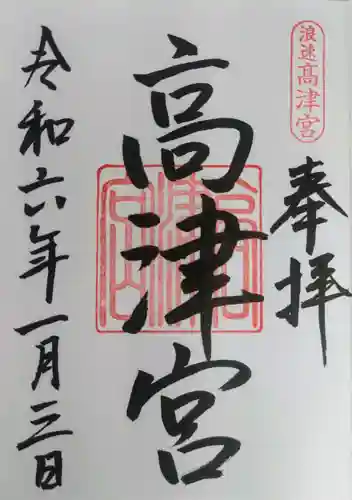 浪速高津宮
奉拝
高津宮
令和六年一月三日